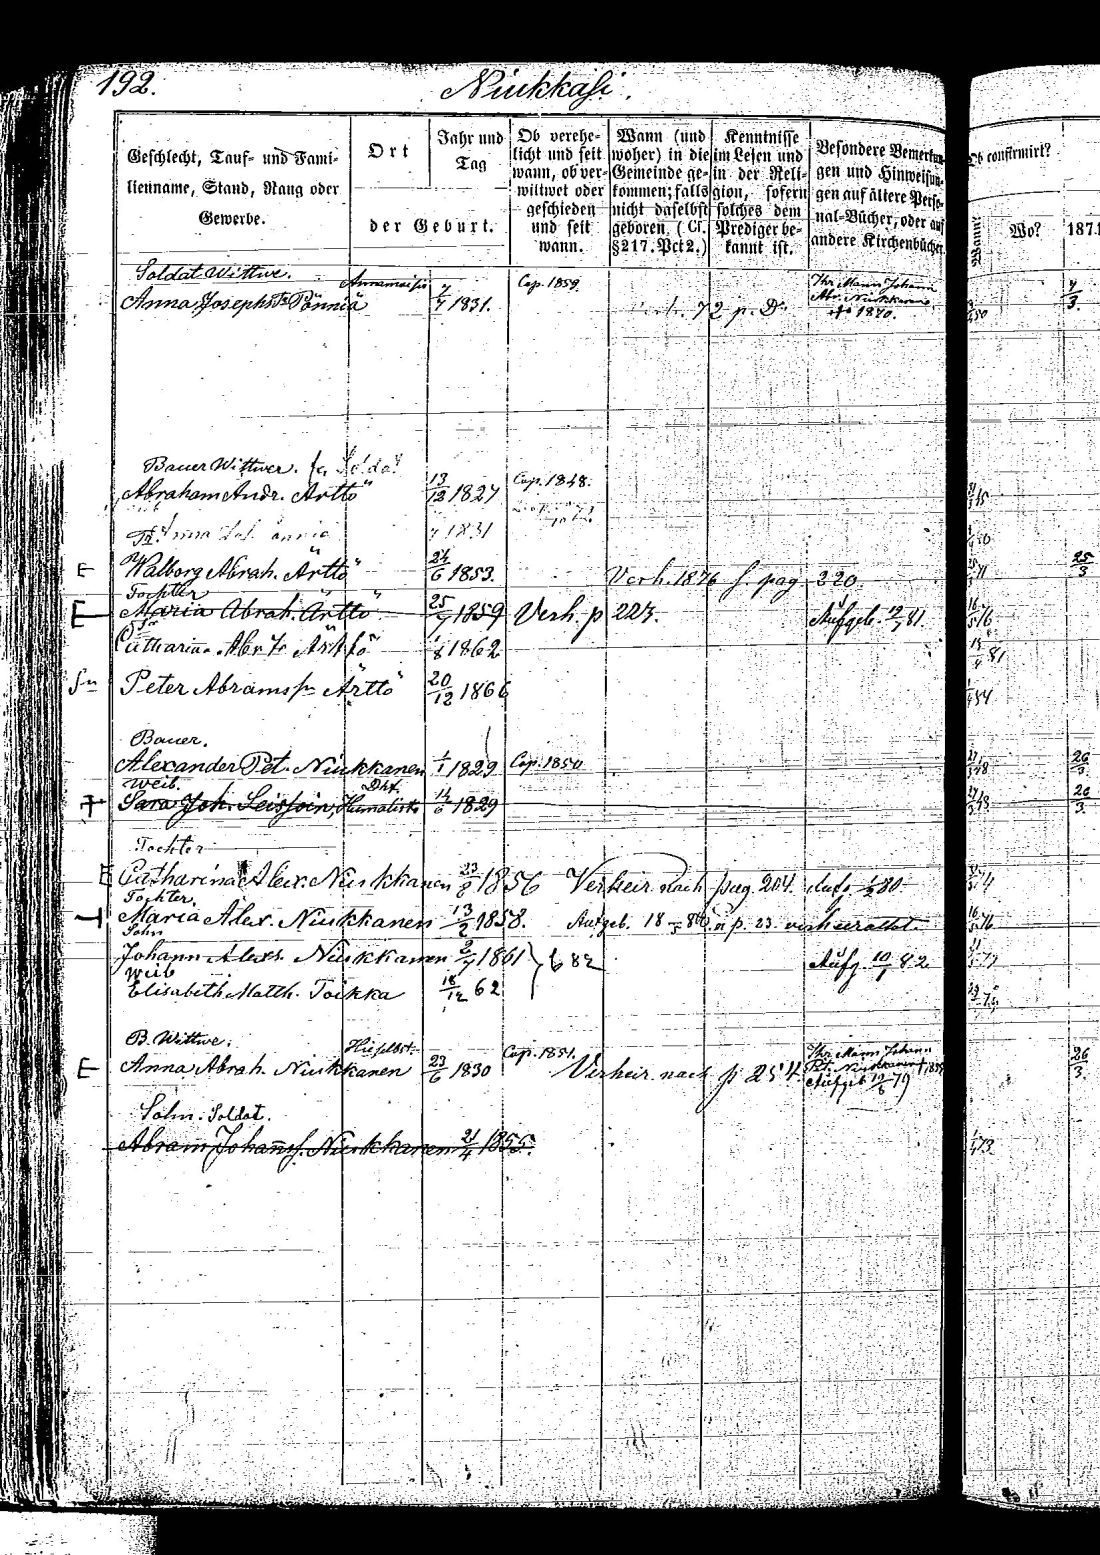 192.
Niukkasi.
Geschlecht, Tauf- und Fami-
lienname, Stand, Rang oder
Gewerbe.
Ort
der Geburt.
Jahr und
Tag
Ob verehe-
licht und seit
wann, ob ver-
wittwet oder
geschieden
und seit
wann.
Wann (und
woher) in die
Gemeinde ge-
kommen; falls
nicht daselbst
geboren. (Cf.
§217. Pct 2.)
Kenntnisse
im Lesen und
in der Reli-
gion, sofern
solches dem
Prediger be-
kannt ist.
Besondere Bemerkun-
gen und Hinweisun-
gen auf ältere Perso-
nal-Bücher, oder auf
andere Kirchenbücher
Ob confirmirt?
Wann?
Wo?
1871
Soldat Wittwe.
Anna Josephs Pönniä 1831. Cop. 1859. 72 p. Ihr Mann Johann
Abr. Niukkanen
1870.
Bauer Wittwer.
Abraham Andr.Ärttö 13/12 1827 Cop. 1848.
1831
E Walborg Abrah. Ärttö 24/6 1853. Verh. 1876 s. pag. 220 25/3
Tochter
E Maria Abrah. Ärttö 25/7 1859 Verh. p 223. Aufgeb. 81
Catharina Abr. Ärttö 1/8 1862
Peter Abramss. Ärttö 20/12 1866
Bauer.
Alexander Pet. Niukkanen 1/1 1829 Cop. 1850 26/3
Weib.
Sara Joh. Leissoin, Humalisto 14/6 1829 26/3
Tochter
E Catharina Alex. Niukkanen 23/8 1856 Verheir. nach pag. 204. Aufg. 80.
Tochter.
Maria Alex. Niukkanen 13/2 1858. Aufgeb. 18 80 n p. 23 verheirathet.
Sohn
Johann Alexs. Niukkanen 2/7 1861 82 Aufg. 10/1 82
Weib
Elisabeth Matth. Toikka 18/12 62
B. Wittwe.
E Anna Abrah. Niukkanen Hieselbst. 23/6 1830 Cop. 1851. Verheir. nach p 254. Ihr Mann Johann
Pet. Niukkanen
Aufgeb 79
26/3
Sohn. Soldat.
Abram Johanns. Niukkanen 21/4 1855.